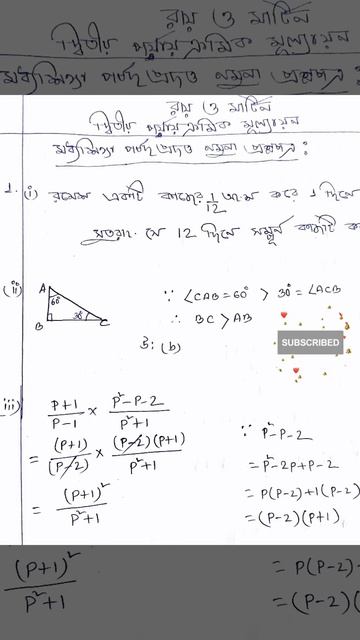 রায় ও মার্টিন
দ্বিতীয় পর্যায়ক্রমিক মূল্যায়ন
মধ্যশিক্ষা পর্ষদ প্রদত্ত নমুনা প্রশ্নপত্র :
রায় ও মার্টিন
দ্বিতীয় পর্যায়ক্রমিক মূল্যায়ন
মধ্যশিক্ষা পর্ষদ প্রদত্ত নমুনা প্রশ্নপত্র :
1. (i) রমেশ একটি কাজের 1/12 অংশ করে 1 দিনে
সুতরাং, সে 12 দিনে সম্পূর্ণ কাজটি
(ii) A 60° B 30° C
∵ ∠CAB=60° > 30° = ∠ACB
∴ BC > AB
উ: (b)
SUBSCRIBED
iii) P+1/P-1 × P²-P-2/P²+1
= (P+1)/(P-2) × (P-2)(P+1)/P²+1
= (P+1)²/P²+1
∵ P²-P-2
= P²-2P+P-2
= P(P-2)+1(P-2)
= (P-2)(P+1)
(P+1)²/P²+1
= P(P-2)
= (P-2)(